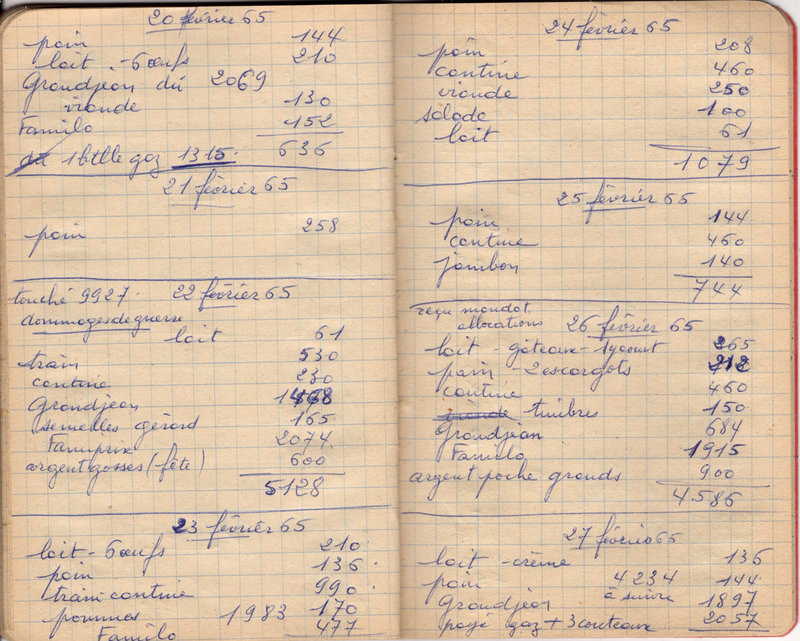 20 février 65
pain 144
lait - 6 œufs 210
Grandjean dû 2069
viande 130
Familo 152
dû 1 btlle gaz 1315. 636
21 février 65
pain 258
touché 9927. 22 février 65
dommages de guerre
lait 61
train 530
cantine 230
Grandjean 1468
semelles gérard 165
Famiprix 2074
argent gosses (fête) 600
5128
23 février 65
lait - 6 œufs 210
pain 136
train cantine 990
pommes 1983 170
Familo 477
24 février 65
pain 208
cantine 460
viande 250
salade 100
lait 61
1079
25 février 65
pain 144
cantine 460
jambon 140
744
reçu mandat
allocations 26 février 65
lait - gâteaux - 1 yaourt 265
pain - 2 escargots 212
cantine 460
viande timbres 150
Grandjean 684
Familo 1915
argent poche grands 900
4586
27 février 65
lait - crème 136
pain 4234 144
Grandjean à suivre 1897
payé gaz + 3 couteaux 2057